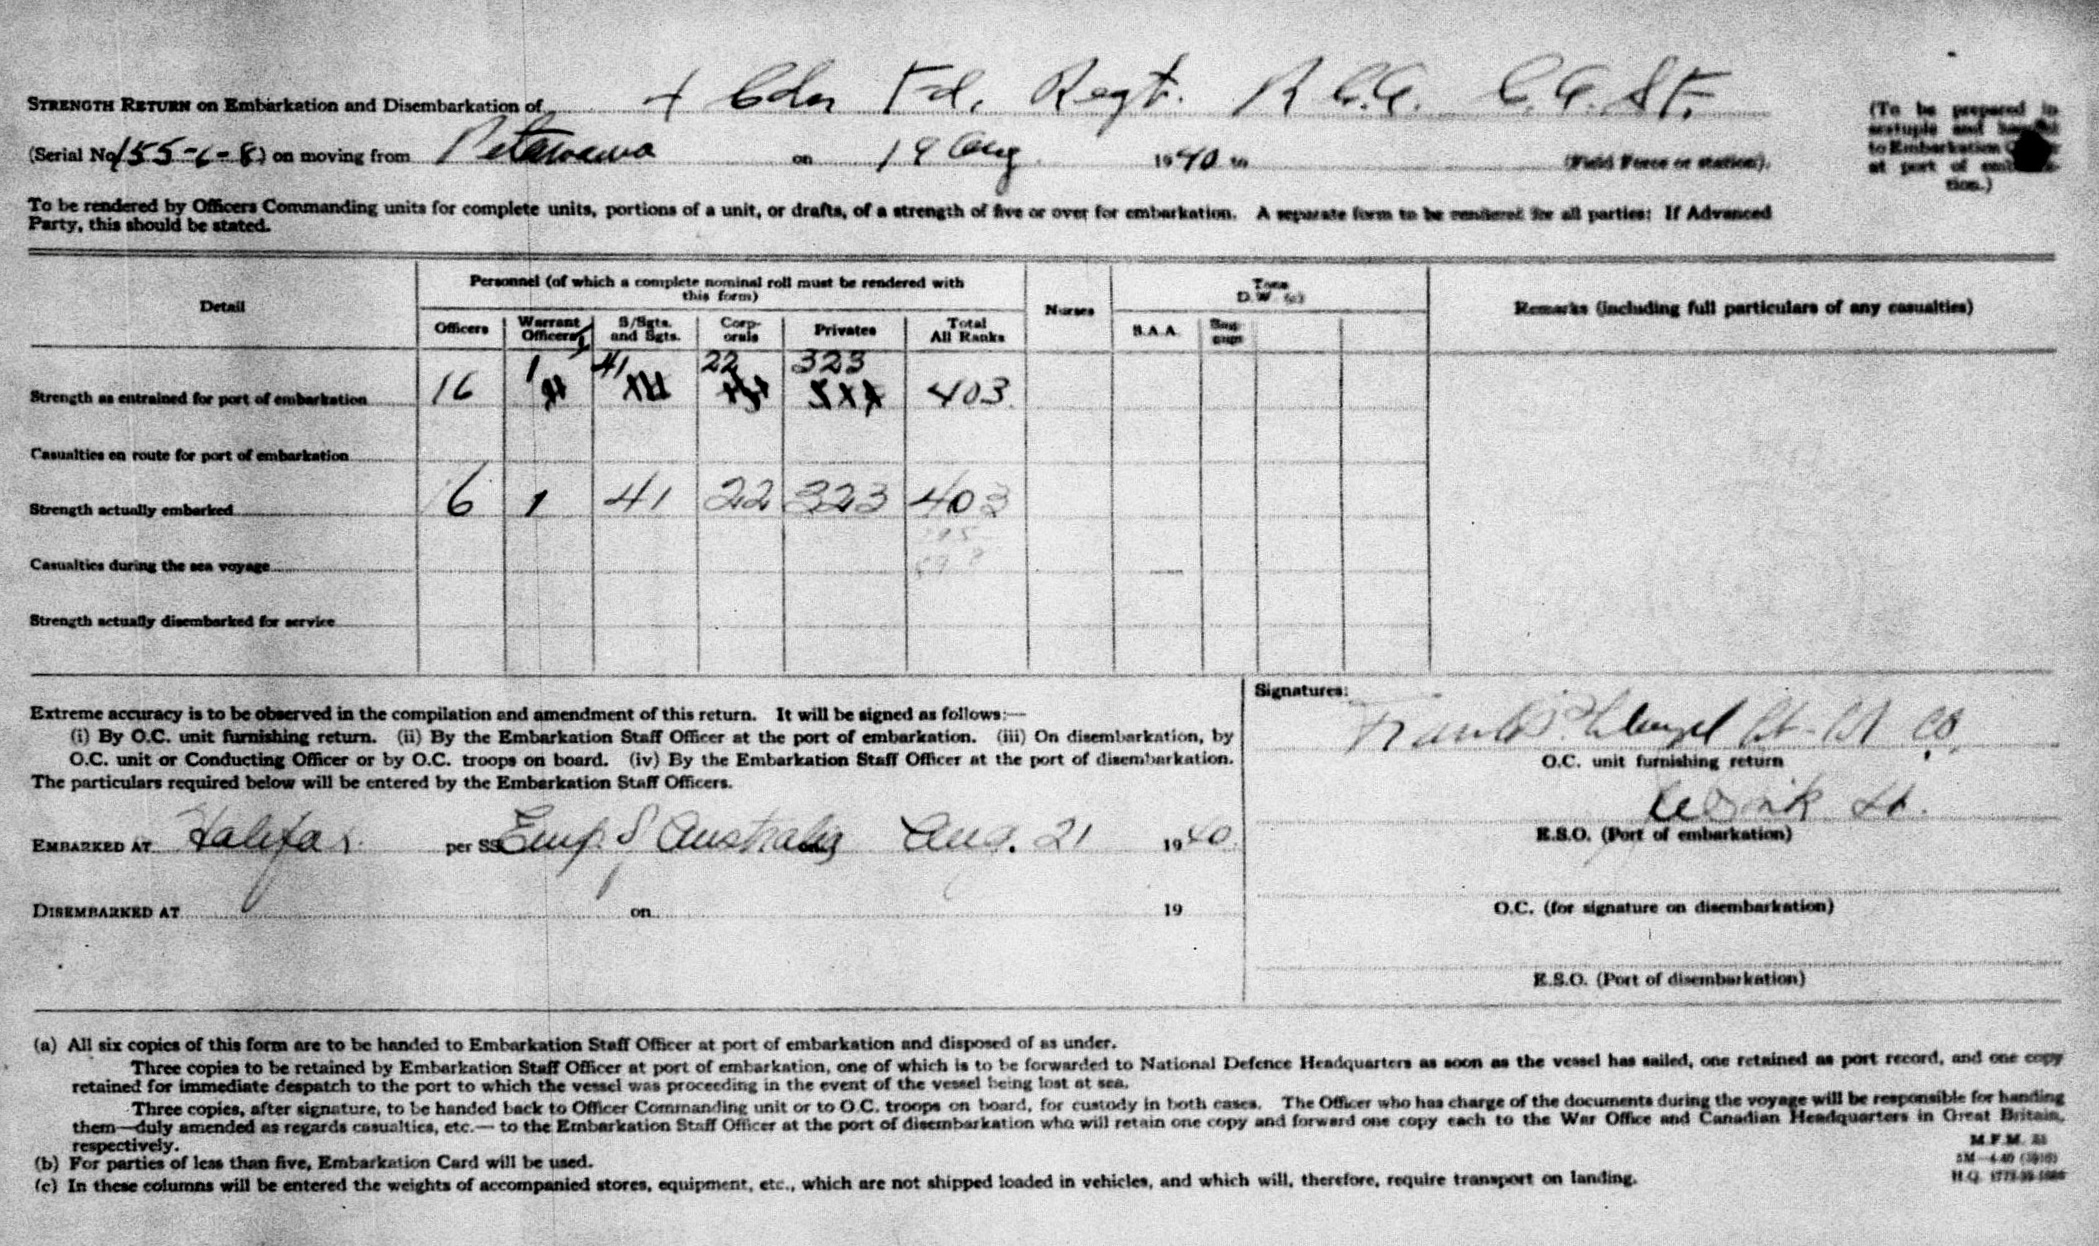 STRENGTH RETURN on Embarkation and Disembarkation of 4 Cdn Fd. Regt. R.C.A. C.A.S.F.
(To be prepared in sextuple and handed to Embarkation Officer at port of embarkation.)
(Serial No 155-6-8) on moving from Petawawa on 19 Aug 1940 to (Field Force or station).
To be rendered by Officers Commanding units for complete units, portions of a unit, or drafts, of a strength of five or over for embarkation. A separate form to be rendered for all parties; If Advanced
Party, this should be stated.
Detail
Personnel (of which a complete nominal roll must be rendered with
this form)
Nurses
Tons
D.W. (c)
Remarks (including full particulars of any casualties)
Officers Warrant Officers S/Sgts. and Sgts. Corp-orals Privates Total All Ranks S.A.A. Bag-gage
1 41 22 323
Strength as entrained for port of embarkation 16 403
Casualties en route for port of embarkation
Strength actually embarked 16 1 41 22 323 403
Casualties during the sea voyage
Strength actually disembarked for service
Signatures:
Extreme accuracy is to be observed in the compilation and amendment of this return. It will be signed as follows:—
(i) By O.C. unit furnishing return. (ii) By the Embarkation Staff Officer at the port of embarkation. (iii) On disembarkation, by
O.C. unit or Conducting Officer or by O.C. troops on board. (iv) By the Embarkation Staff Officer at the port of disembarkation.
The particulars required below will be entered by the Embarkation Staff Officers.
Lt-Col
O.C. unit furnishing return
Lt.
E.S.O. (Port of embarkation)
EMBARKED AT Halifax per SS Emp of Australia Aug. 21 1940
DISEMBARKED AT on 19
O.C. (for signature on disembarkation)
E.S.O. (Port of disembarkation)
(a) All six copies of this form are to be handed to Embarkation Staff Officer at port of embarkation and disposed of as under.
Three copies to be retained by Embarkation Staff Officer at port of embarkation, one of which is to be forwarded to National Defence Headquarters as soon as the vessel has sailed, one retained as port record, and one copy
retained for immediate despatch to the port to which the vessel was proceeding in the event of the vessel being lost at sea.
Three copies, after signature, to be handed back to Officer Commanding unit or to O.C. troops on board, for custody in both cases. The Officer who has charge of the documents during the voyage will be responsible for handing
them—duly amended as regards casualties, etc.—to the Embarkation Staff Officer at the port of disembarkation who will retain one copy and forward one copy each to the War Office and Canadian Headquarters in Great Britain,
respectively.
(b) For parties of less than five, Embarkation Card will be used.
(c) In these columns will be entered the weights of accompanied stores, equipment, etc., which are not shipped loaded in vehicles, and which will, therefore, require transport on landing.
M.F.M.
H.Q.